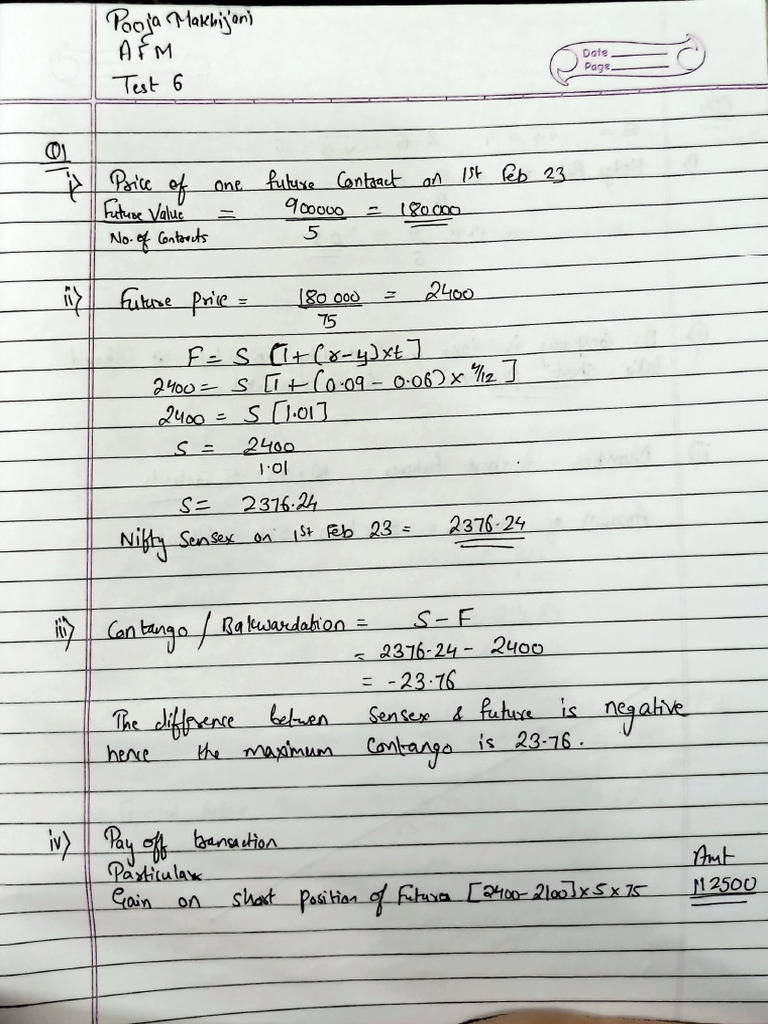 Pooja Makhijani
AFM
Test 6
Date
Page
Q1
i) Price of one future Contract on 1st Feb 23
Future Value = 900000 = 180000
No. of Contracts 5
ii) Future price = 180 000 = 2400
75
F = S [1+(r-y)xt]
2400 = S [1 + (0.09 - 0.06) x 4/12]
2400 = S [1.01]
S = 2400
1.01
S = 2376.24
Nifty Sensex on 1st Feb 23 = 2376.24
iii) Contango / Bakwardation = S - F
= 2376.24 - 2400
= -23.76
The difference betwen Sensex & future is negative
hence the maximum Contango is 23.76.
iv) Pay off transaction
Particulars Amt
Gain on short position of Futures [2400-2100] x 5 x 75 112500